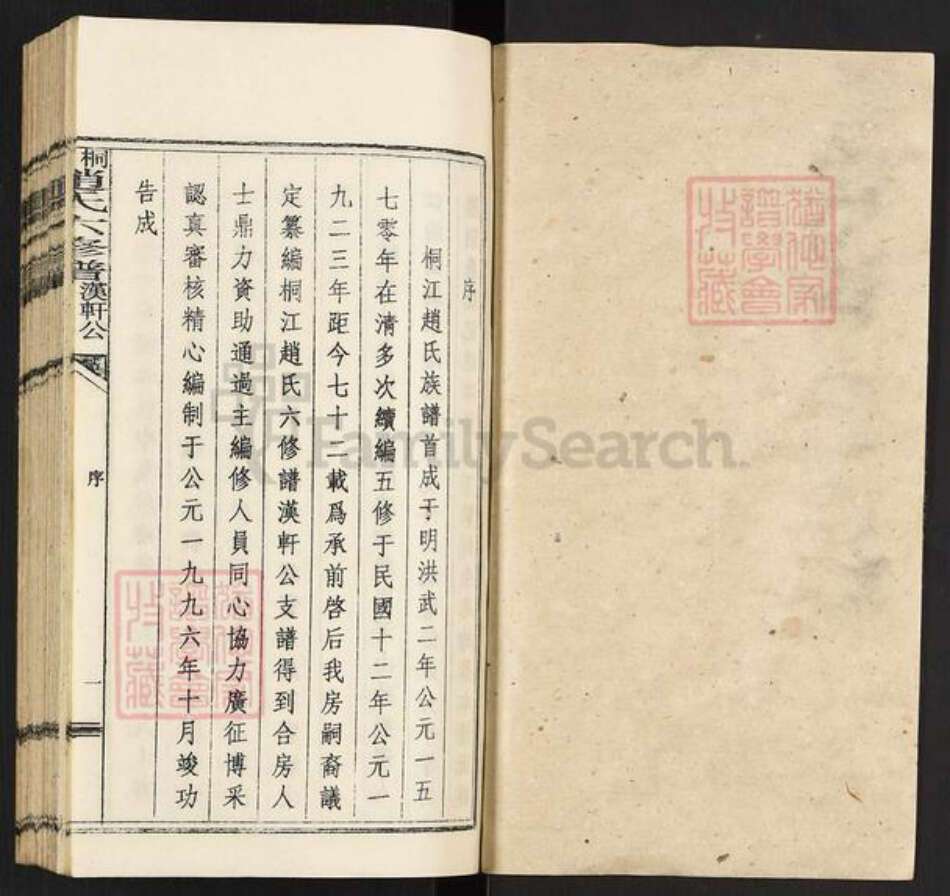 序
桐江趙氏族譜首成于明洪武二年公元一五
七零年在清多次續編五修于民國十二年公元一
九二三年距今七十二載爲承前啓后我房嗣裔議
定纂編桐江趙氏六修譜漢軒公支譜得到合房人
士鼎力資助通過主編修人員同心協力廣征博采
認真審核精心編制于公元一九九六年十月竣功
告成
桐
趙氏六修譜漢軒公
序
一
FamilySearch
譜學會
收藏
譜學會
收藏